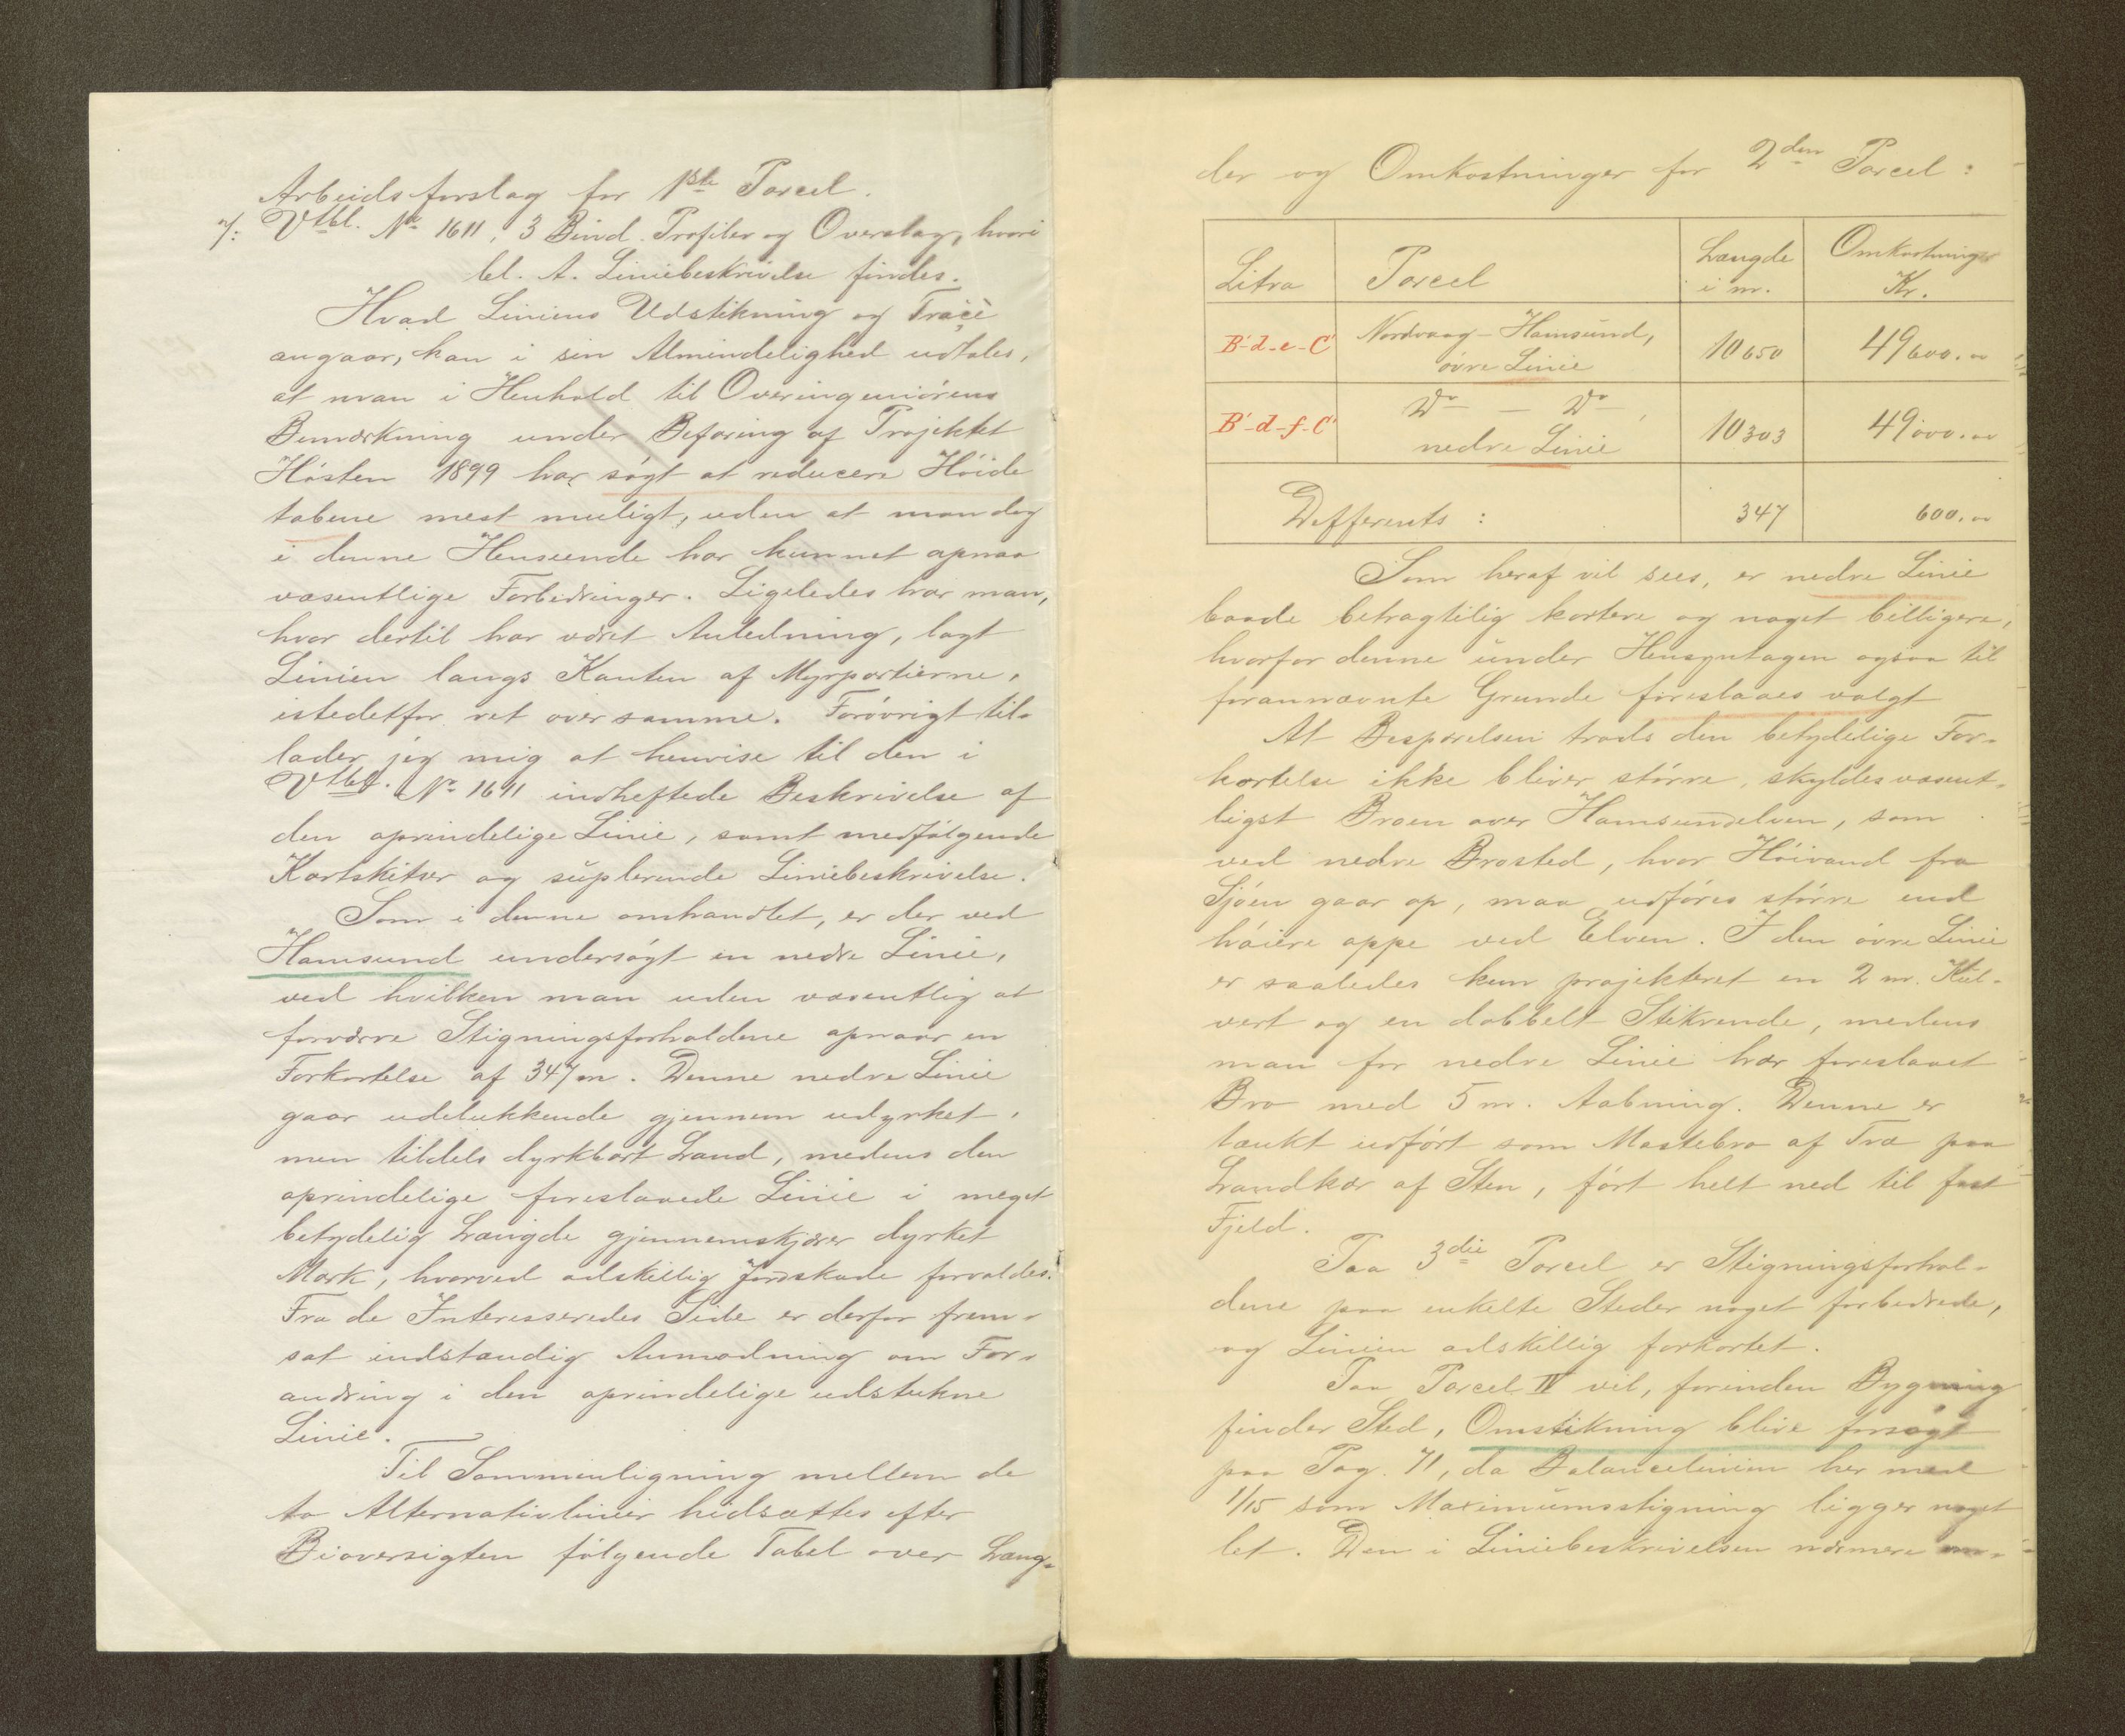 Arbeidsforslag for 1ste Parcel.
Vtbl. No 1611, 3 Bind Profiler og Overslag, hvori
bl. A. Liniebeskrivelse findes.
Hvad Liniens Udstikning og Tracé
angaar, kan i sin Almindelighed udtales,
at man i Henhold til Overingeniörens
Bemærkning under Befaring af Projektet
Hösten 1899 har sögt at reducere Höide
tabene mest muligt, uden at man dog
i denne Henseende har kunnet opnaa
væsentlige Forbedringer. Ligeledes har man,
hvor dertil har været Anledning, lagt
Linien langs Kanten af Myrpartierne,
istedetfor ret over samme. Forövrigt til-
lader jeg mig at henvise til den i
Vtbl. No 1611 indheftede Beskrivelse af
den oprindelige Linie, samt medfölgende
Kartskitser og suplerende Liniebeskrivelse.
Som i denne omhandlet, er der ved
Hamsund undersögt en nedre Linie,
ved hvilken man uden væsentlig at
forværre Stigningsforholdene opnaar en
Forkortelse af 347 m. Denne nedre Linie
gaar udelukkende gjennem udyrket,
men tildels dyrkbart Land, medens den
oprindelige foreslaaede Linie i meget
betydelig Længde gjennemskjærer dyrket
Mark, hvorved adskillig Jordskade forvoldes.
Fra de Interesseredes Side er derfor frem-
sat indstændig Anmodning om For-
andring i den oprindelige udstukne
Linie.
Til Sammenligning mellem de
to Alternativlinier hidsættes efter
Bioversigten fölgende Tabel over Læng-
der og Omkostninger for 2den Parcel:
Litra Parcel Længde i m. Omkostninger Kr.
B'-d-e-C' Nordvaag-Hamsund, övre Linie 10650 49600.00
B'-d-f-C' Do - Do, nedre Linie 10303 49000.00
Differents: 347 600.00
Som heraf vil sees, er nedre Linie
baade betragtelig kortere og noget billigere,
hvorfor denne under Hensyntagen ogsaa til
forannævnte Grunde foreslaaes valgt
At Besparelsen trods den betydelige For-
kortelse ikke bliver större, skyldes væsent-
ligst Broen over Hamsundelven, som
ved nedre Brosted, hvor Höivand fra
Sjöen gaar op, maa udföres större end
höiere oppe ved Elven. I den övre Linie
er saaledes kun projekteret en 2 m. Kul-
vert og en dobbelt Stikrende, medens
man for nedre Linie har foreslaaet
Bro med 5 m. Aabning. Denne er
tænkt udfört som Mastebro af Træ paa
Landkar af Sten, fört helt ned til fast
Fjeld.
Paa 3die Parcel er Stigningsforhol-
dene paa enkelte Steder noget forbedrede,
og Linien adskillig forkortet.
Paa Parcel IV vil, forinden Bygning
finder Sted, Omstikning blive forsögt
paa Pag. 71, da Balancelinien her med
1/15 som Maximumsstigning ligger noget
let. Den i Liniebeskrivelsen nærmere om-